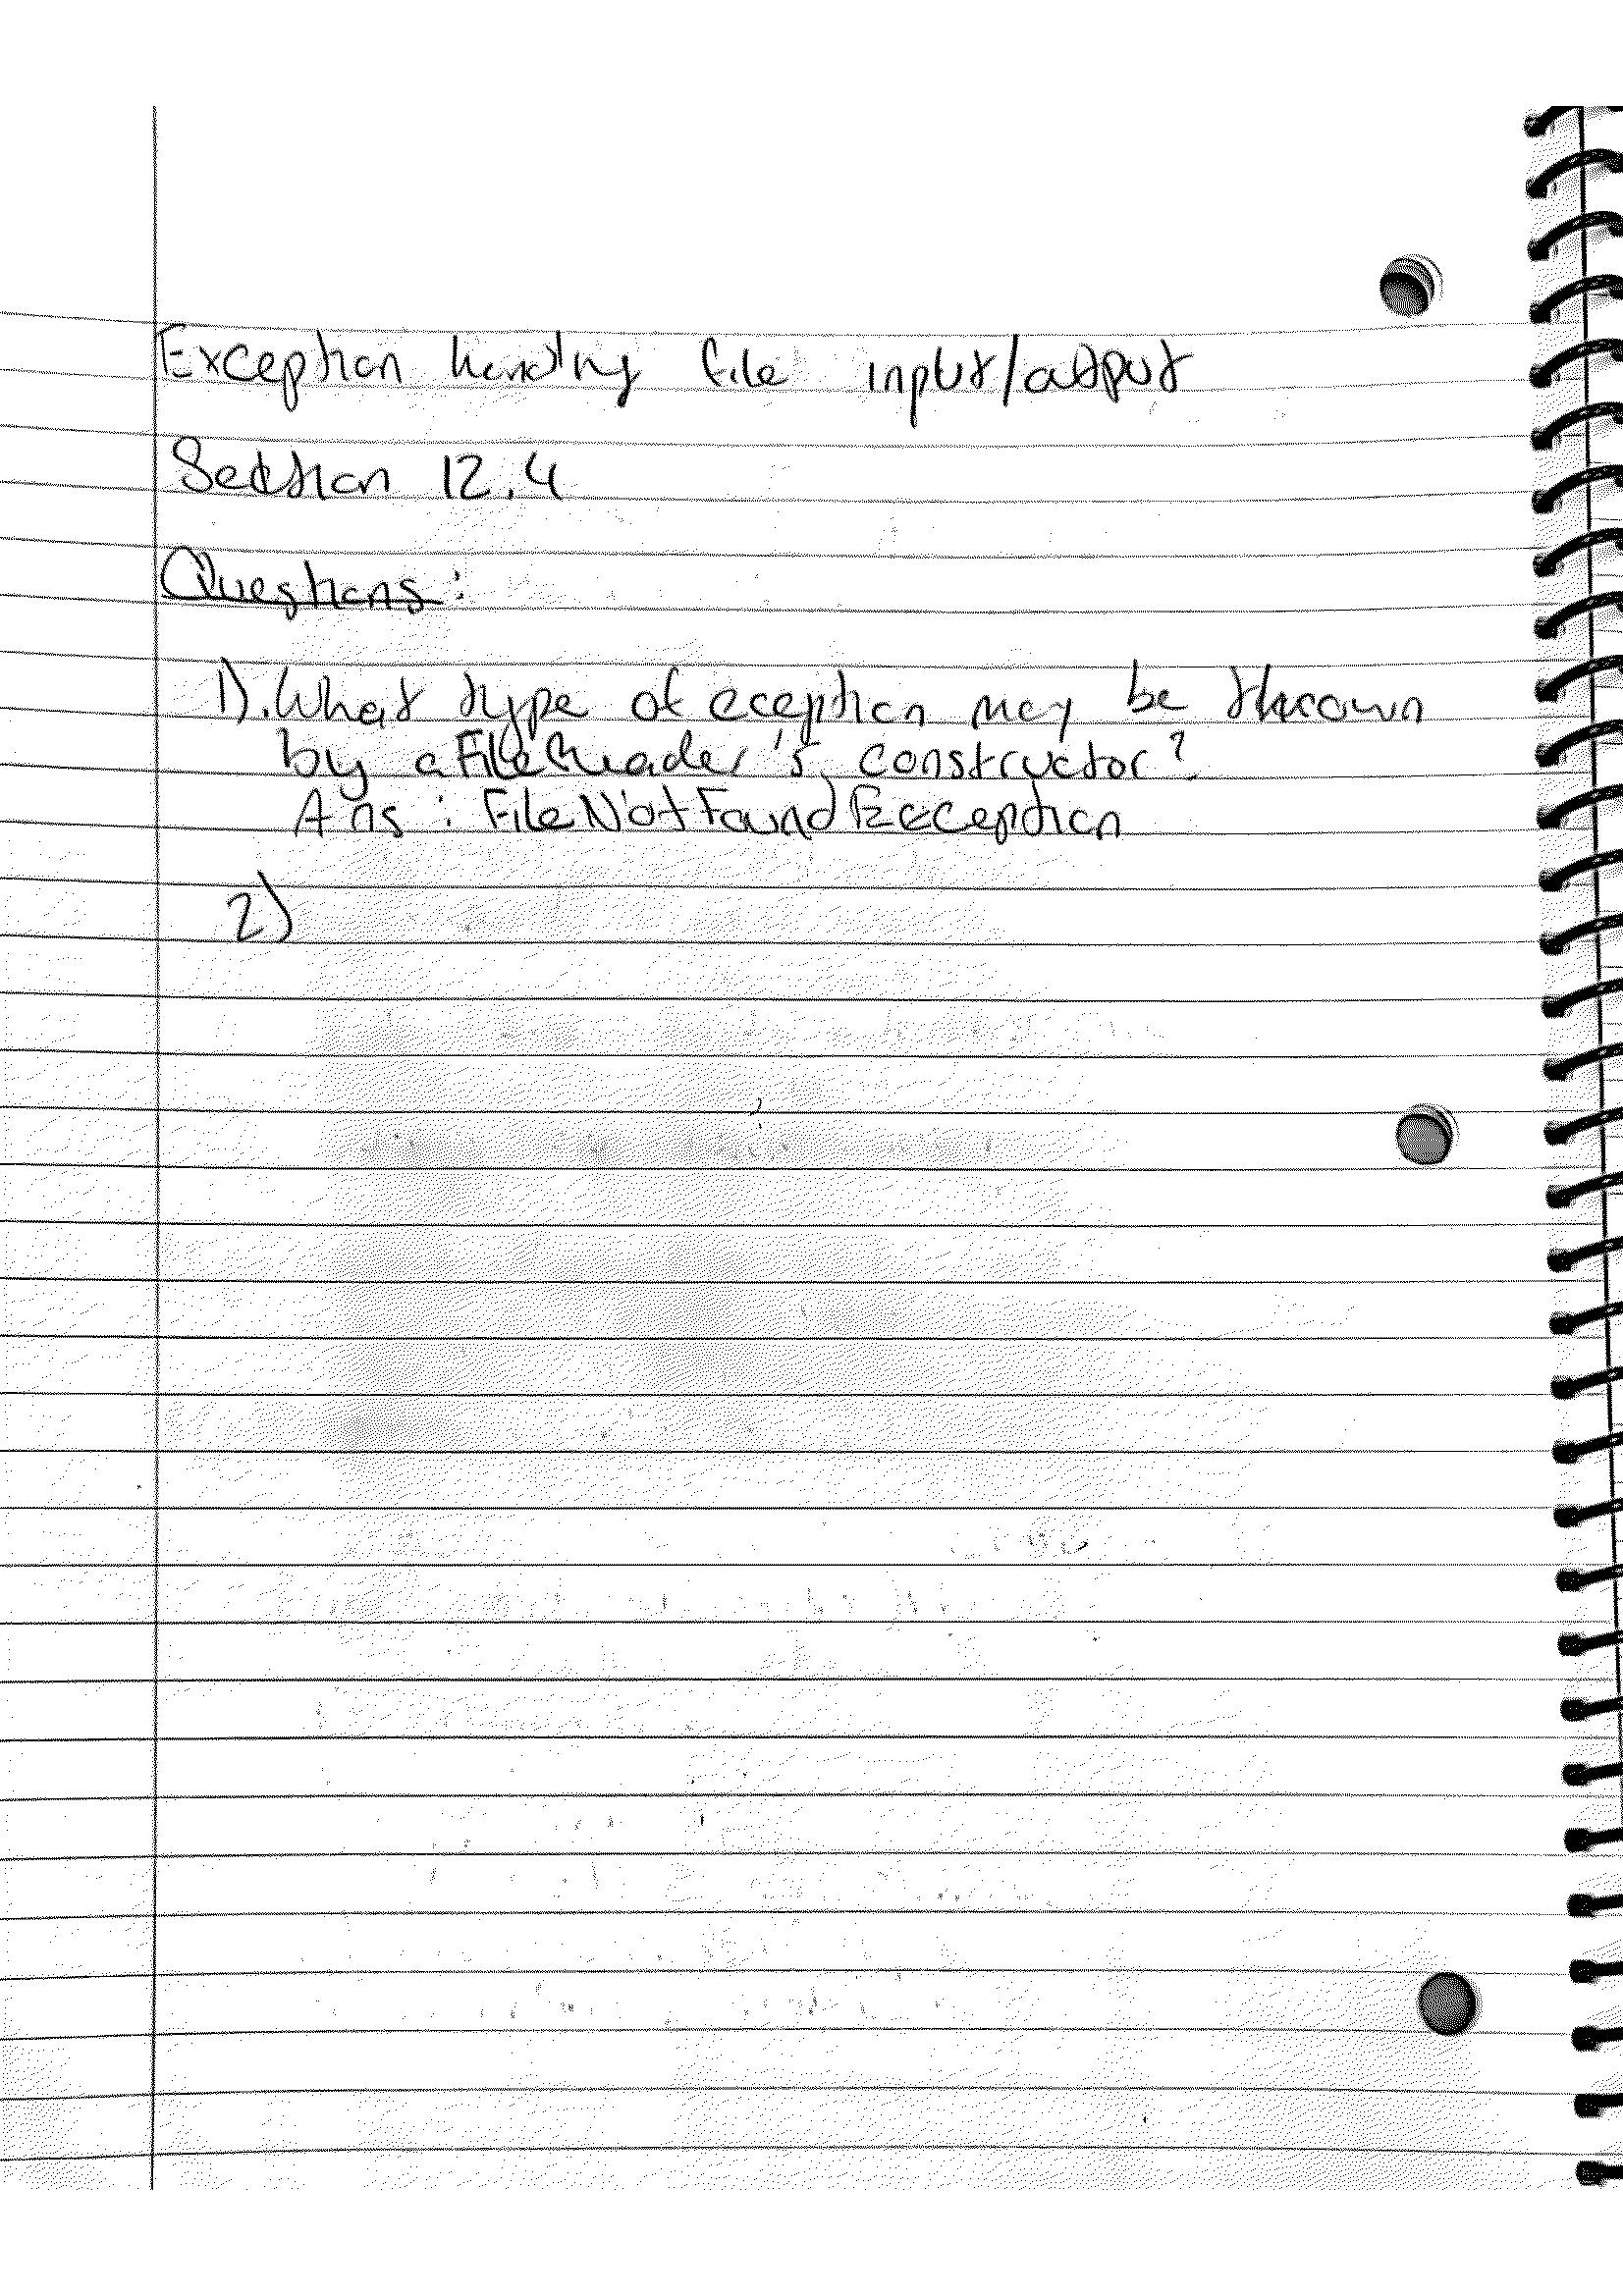 Exception handling file input/output
Section 12.4
Questions:
1). What type of eception may be thrown
by a FileReader's constructor?
Ans: FileNotFoundException
2)